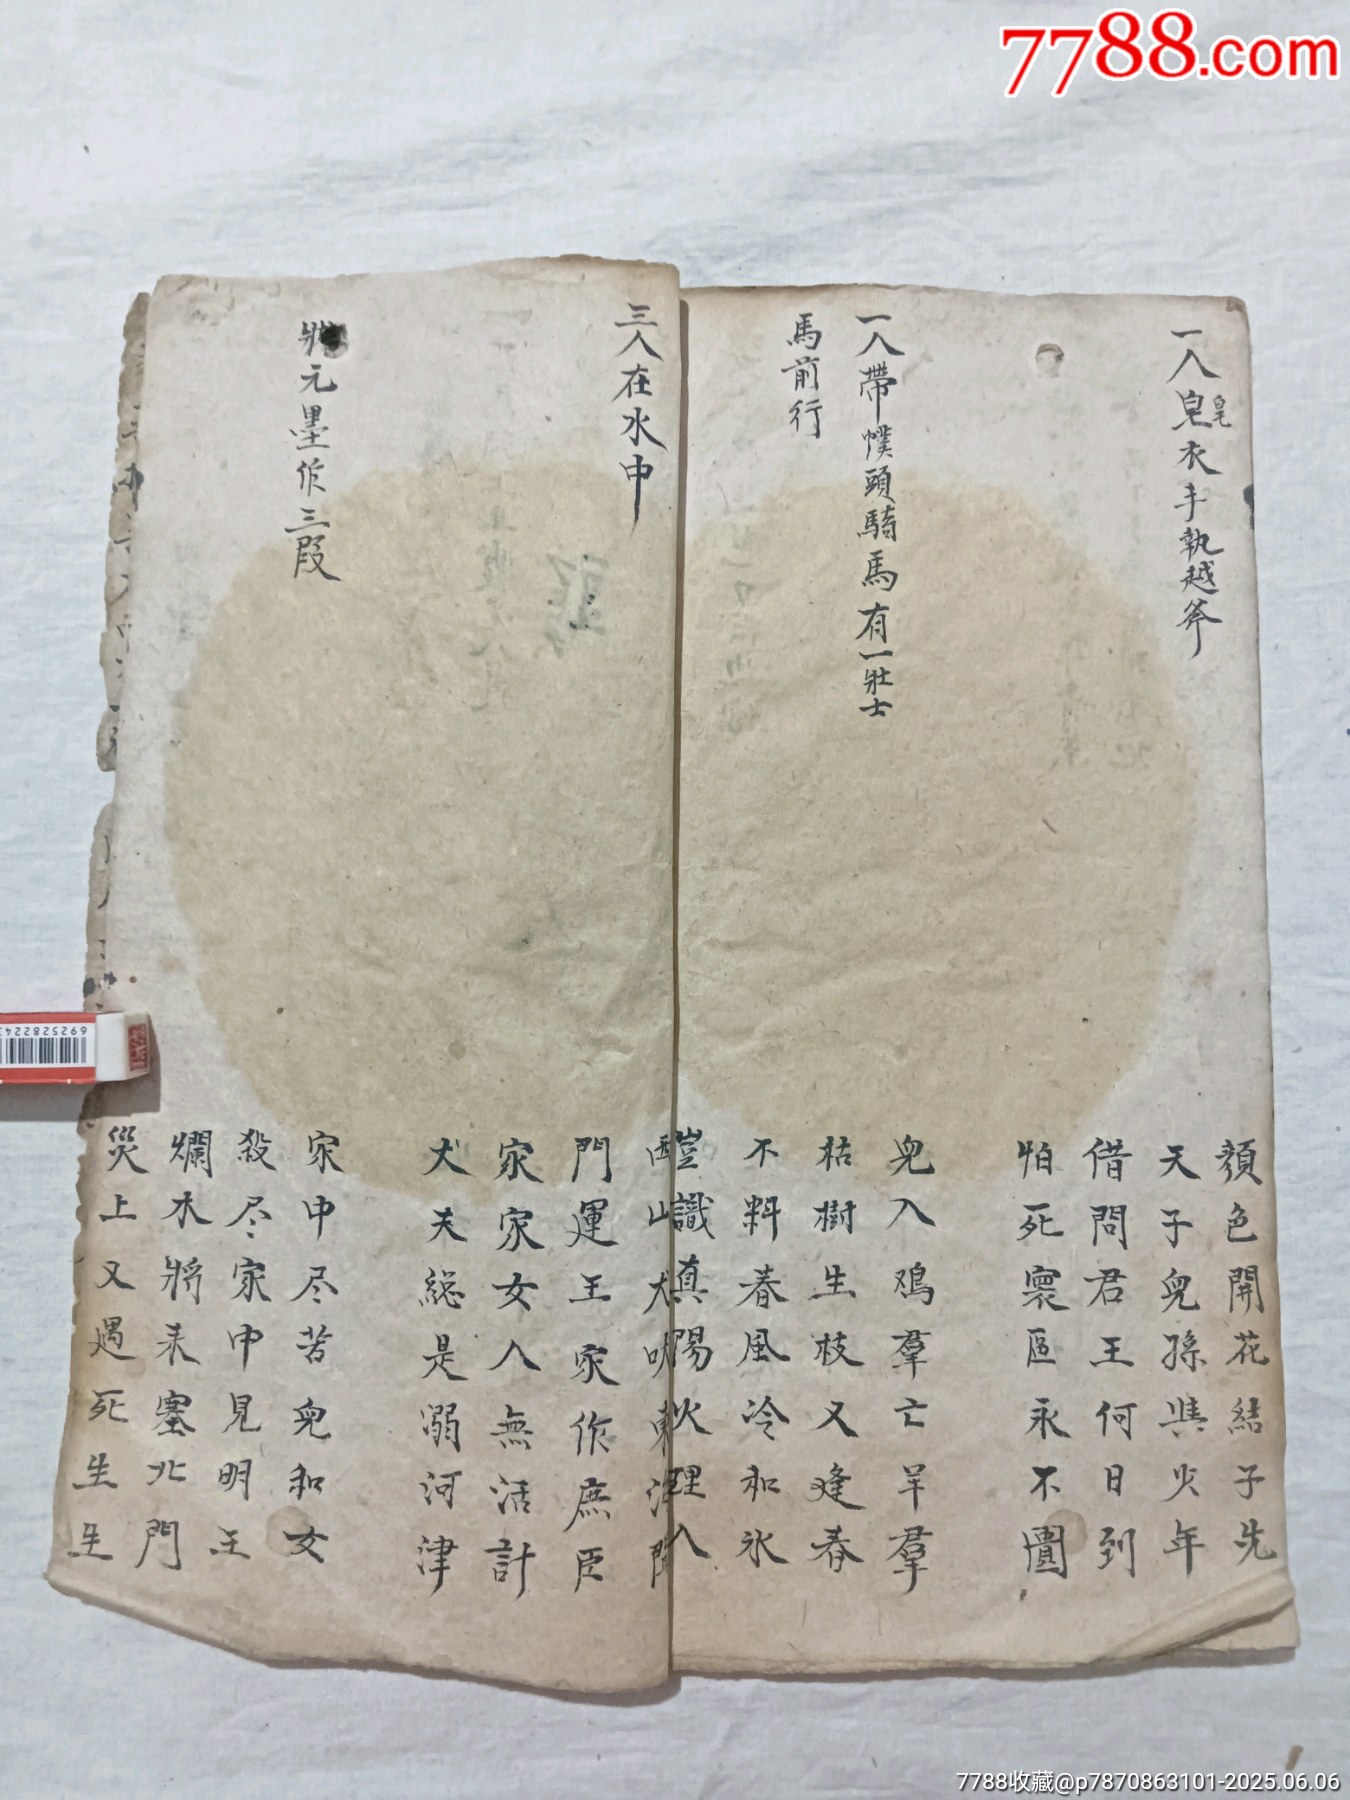 7788.com
一人皂衣手執越斧
皂
一人帶幞頭騎馬有一壯士
馬前行
顏色開花結子先
天子兒孫與火年
借問君王何日到
怕死寰區永不圓
兒入鴉羣亡羊羣
枯樹生枝又逢春
不料春風冷和氷
識真陽火理入
三人在水中
狀元墨作三段
門運王家作庶臣
家家女人無活計
犬夫総是溺河津
家中尽苦兒和女
殺尽家中見明王
爛木將来塞北門
災上又遇死生生
6925282243
7788收藏@p7870863101-2025.06.06